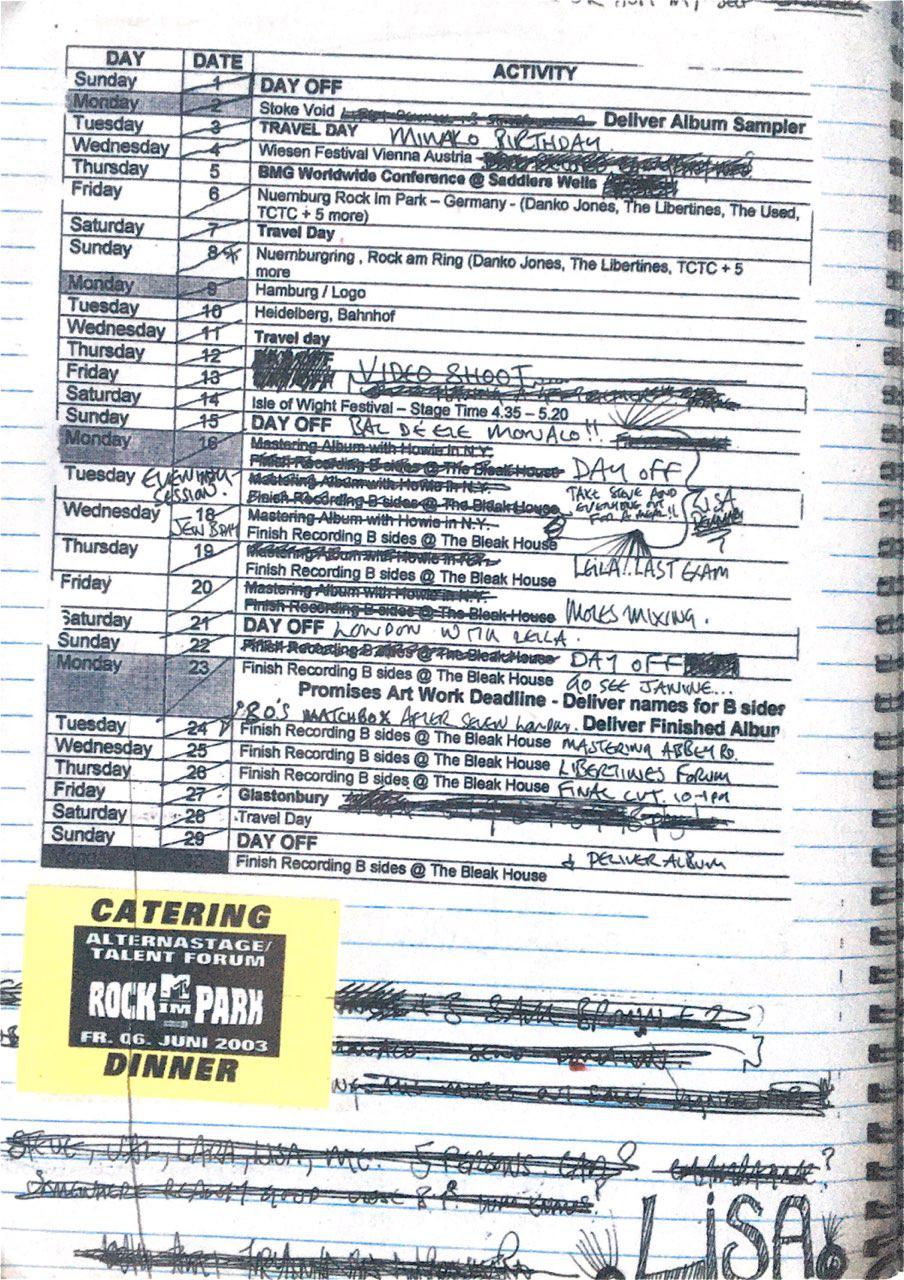 DAY DATE ACTIVITY
Sunday 1 DAY OFF
Monday 2 Stoke Void Deliver Album Sampler
Tuesday 3 TRAVEL DAY MINAKO BIRTHDAY.
Wednesday 4 Wiesen Festival Vienna Austria -
Thursday 5 BMG Worldwide Conference @ Saddlers Wells
Friday 6 Nuernburg Rock Im Park – Germany - (Danko Jones, The Libertines, The Used,
TCTC + 5 more)
Saturday 7 Travel Day
Sunday 8 Nuernburgring , Rock am Ring (Danko Jones, The Libertines, TCTC + 5
more
Monday 9 Hamburg / Logo
Tuesday 10 Heidelberg, Bahnhof
Wednesday 11 Travel day
Thursday 12
Friday 13 VIDEO SHOOT
Saturday 14 Isle of Wight Festival – Stage Time 4.35 – 5.20
Sunday 15 DAY OFF MONACO!!
Monday 16 Mastering Album with Howie in N.Y.
Finish Recording B sides @ The Bleak House DAY OFF
Tuesday Mastering Album with Howie in N.Y.
SESSION. Finish Recording B sides @ The Bleak House TAKE STEVE AND
EVERYONE OUT
FOR A MEAL!! LISA
Wednesday 18 Mastering Album with Howie in N.Y.
Finish Recording B sides @ The Bleak House
Thursday 19 Mastering Album with Howie in N.Y.
Finish Recording B sides @ The Bleak House LEILA!! LAST EXAM
Friday 20 Mastering Album with Howie in N.Y.
Finish Recording B sides @ The Bleak House MOLES MIXING.
Saturday 21 DAY OFF LONDON WITH LEILA.
Sunday 22 Finish Recording B sides @ The Bleak House DAY OFF
Monday 23 Finish Recording B sides @ The Bleak House GO SEE JANINE...
Promises Art Work Deadline - Deliver names for B sides
80'S MATCHBOX AFTER SEVEN London. Deliver Finished Album
Tuesday 24 Finish Recording B sides @ The Bleak House MASTERING ABBEY RD.
Wednesday 25 Finish Recording B sides @ The Bleak House LIBERTINES FORUM
Thursday 26 Finish Recording B sides @ The Bleak House FINAL CUT 10-1pm
Friday 27 Glastonbury
Saturday 28 Travel Day
Sunday 29 DAY OFF
Finish Recording B sides @ The Bleak House & DELIVER ALBUM
CATERING
ALTERNASTAGE/
TALENT FORUM
ROCK IM PARK
FR. 06. JUNI 2003
DINNER
STEVE, LARA, LISA, ME. 5 PERSONS. CAR?
SOMEWHERE REALLY GOOD
LiSA